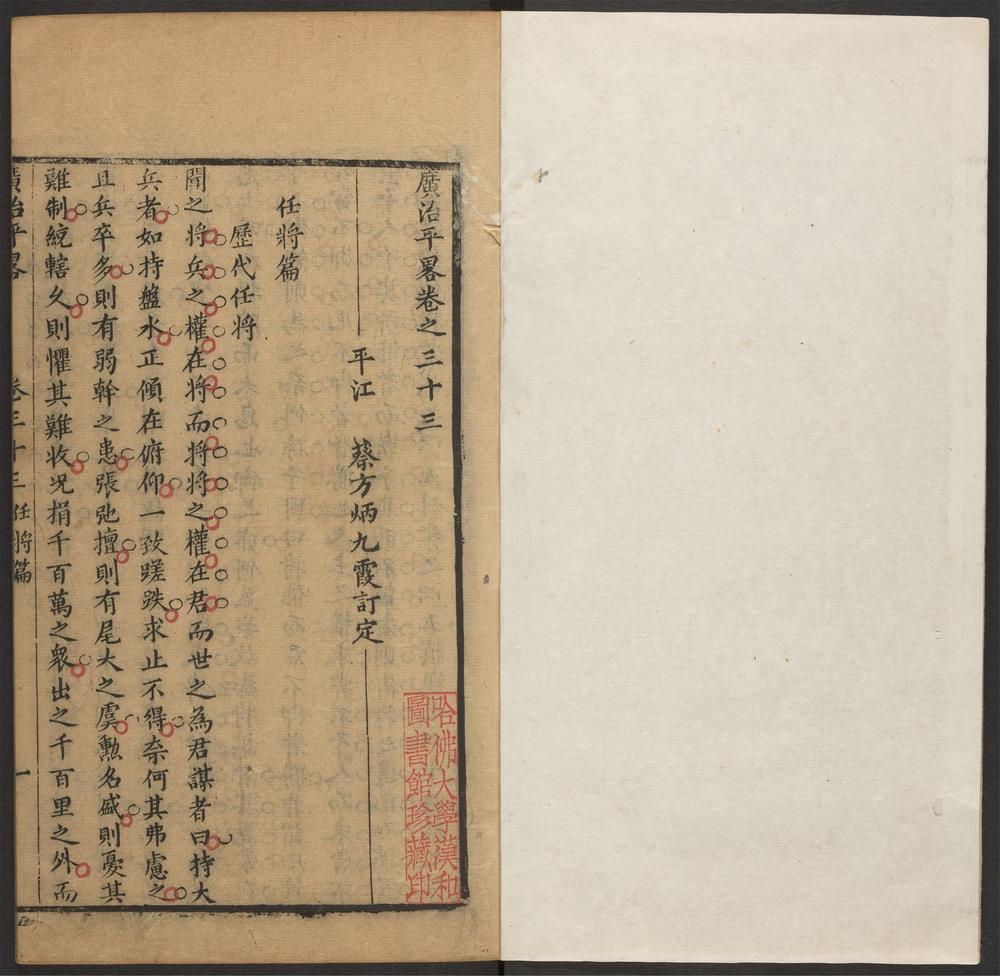 廣治平畧卷之三十三
平江 蔡方炳九霞訂定
任將篇
歷代任將
聞之將兵之權在將而將將之權在君而世之為君謀者曰持大
兵者如持盤水正傾在俯仰一致蹉跌求止不得柰何其弗慮之
且兵卒多則有弱幹之患張弛擅則有尾大之虞勲名盛則憂其
難制統轄久則懼其難收况捐千百萬之衆出之千百里之外而
廣治平畧 卷三十三 任將篇 一
哈佛大學漢和
圖書館珍藏印